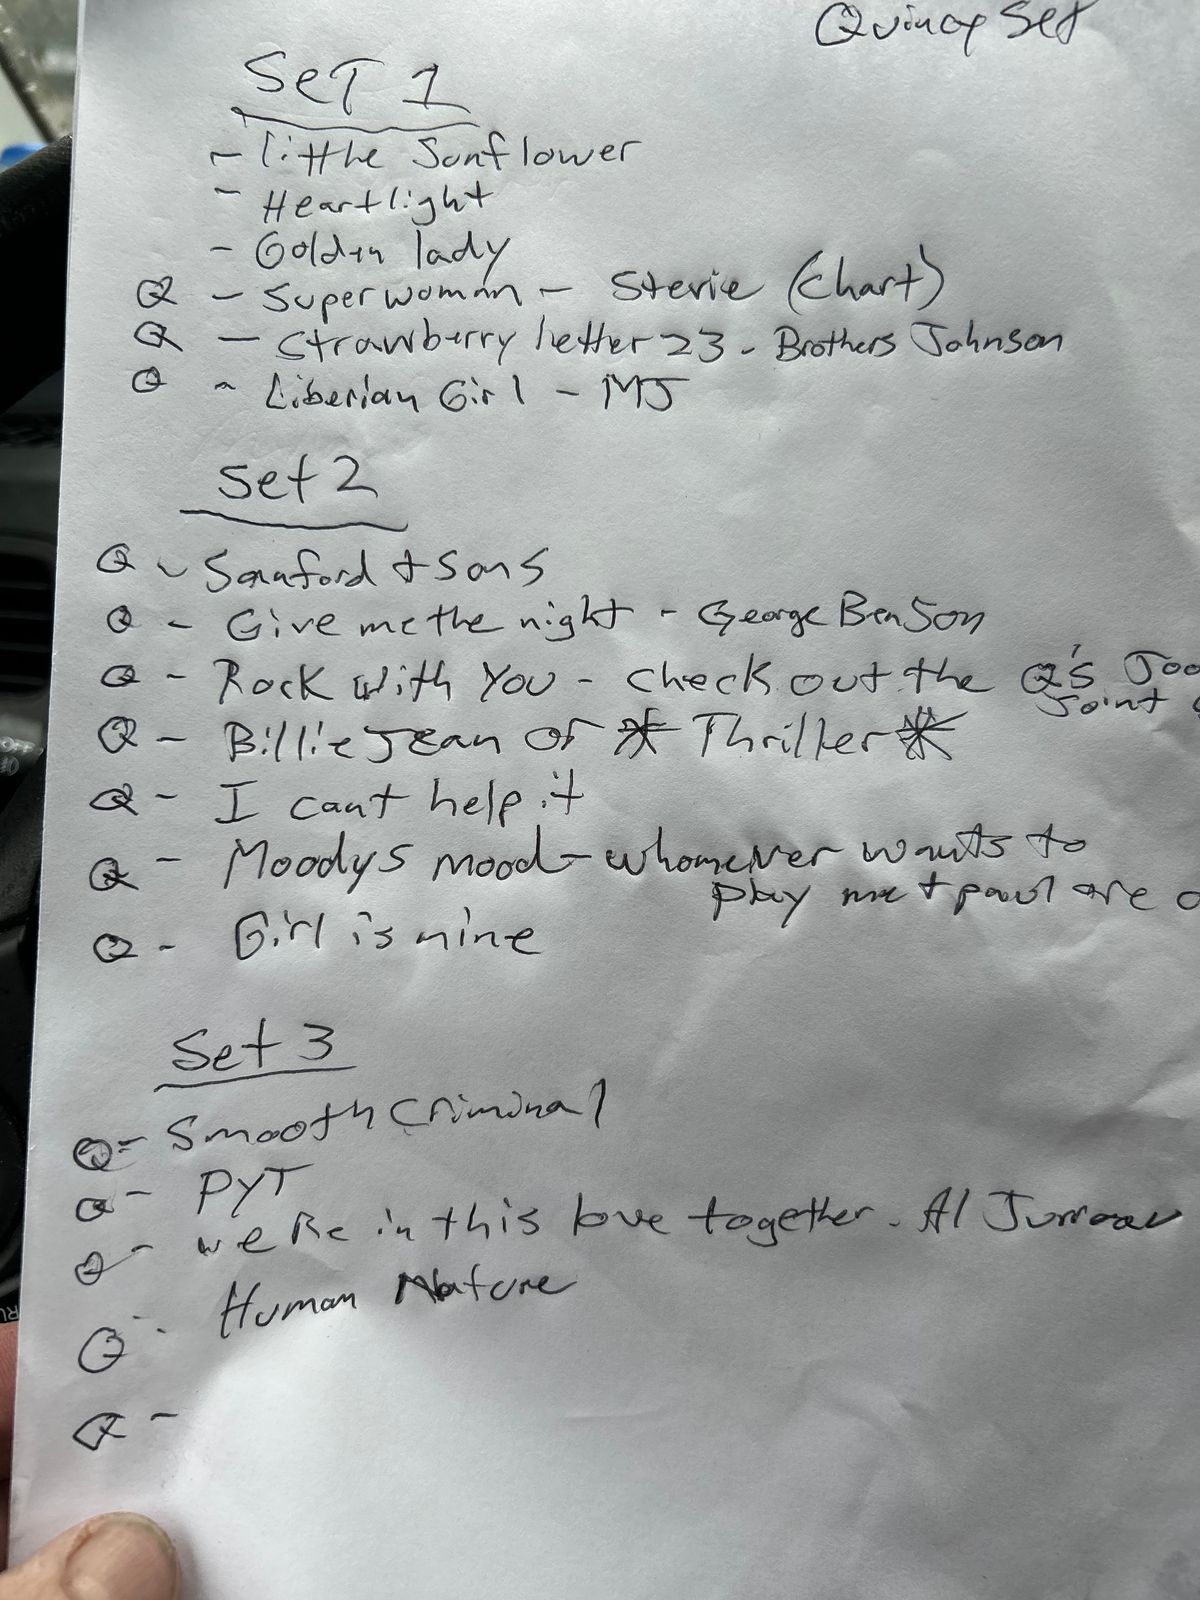 Quincy Set
SET 1
- little Sunflower
- Heartlight
- Golden lady
Q - Superwoman - Stevie (chart)
Q - Strawberry Letter 23 - Brothers Johnson
Q - Liberian Girl - MJ
Set 2
Q - Sanford + Sons
Q - Give me the night - George Benson
Q - Rock With You - check out the Q's Joo
Joint
Q - Billie Jean or * Thriller *
Q - I cant help it
Q - Moodys mood - whomever wants to
play me + paul are
Q - Girl is mine
Set 3
Q - Smooth Criminal
Q - PYT
Q - we Re in this love together - Al
Q - Human Nature
Q -
OFF